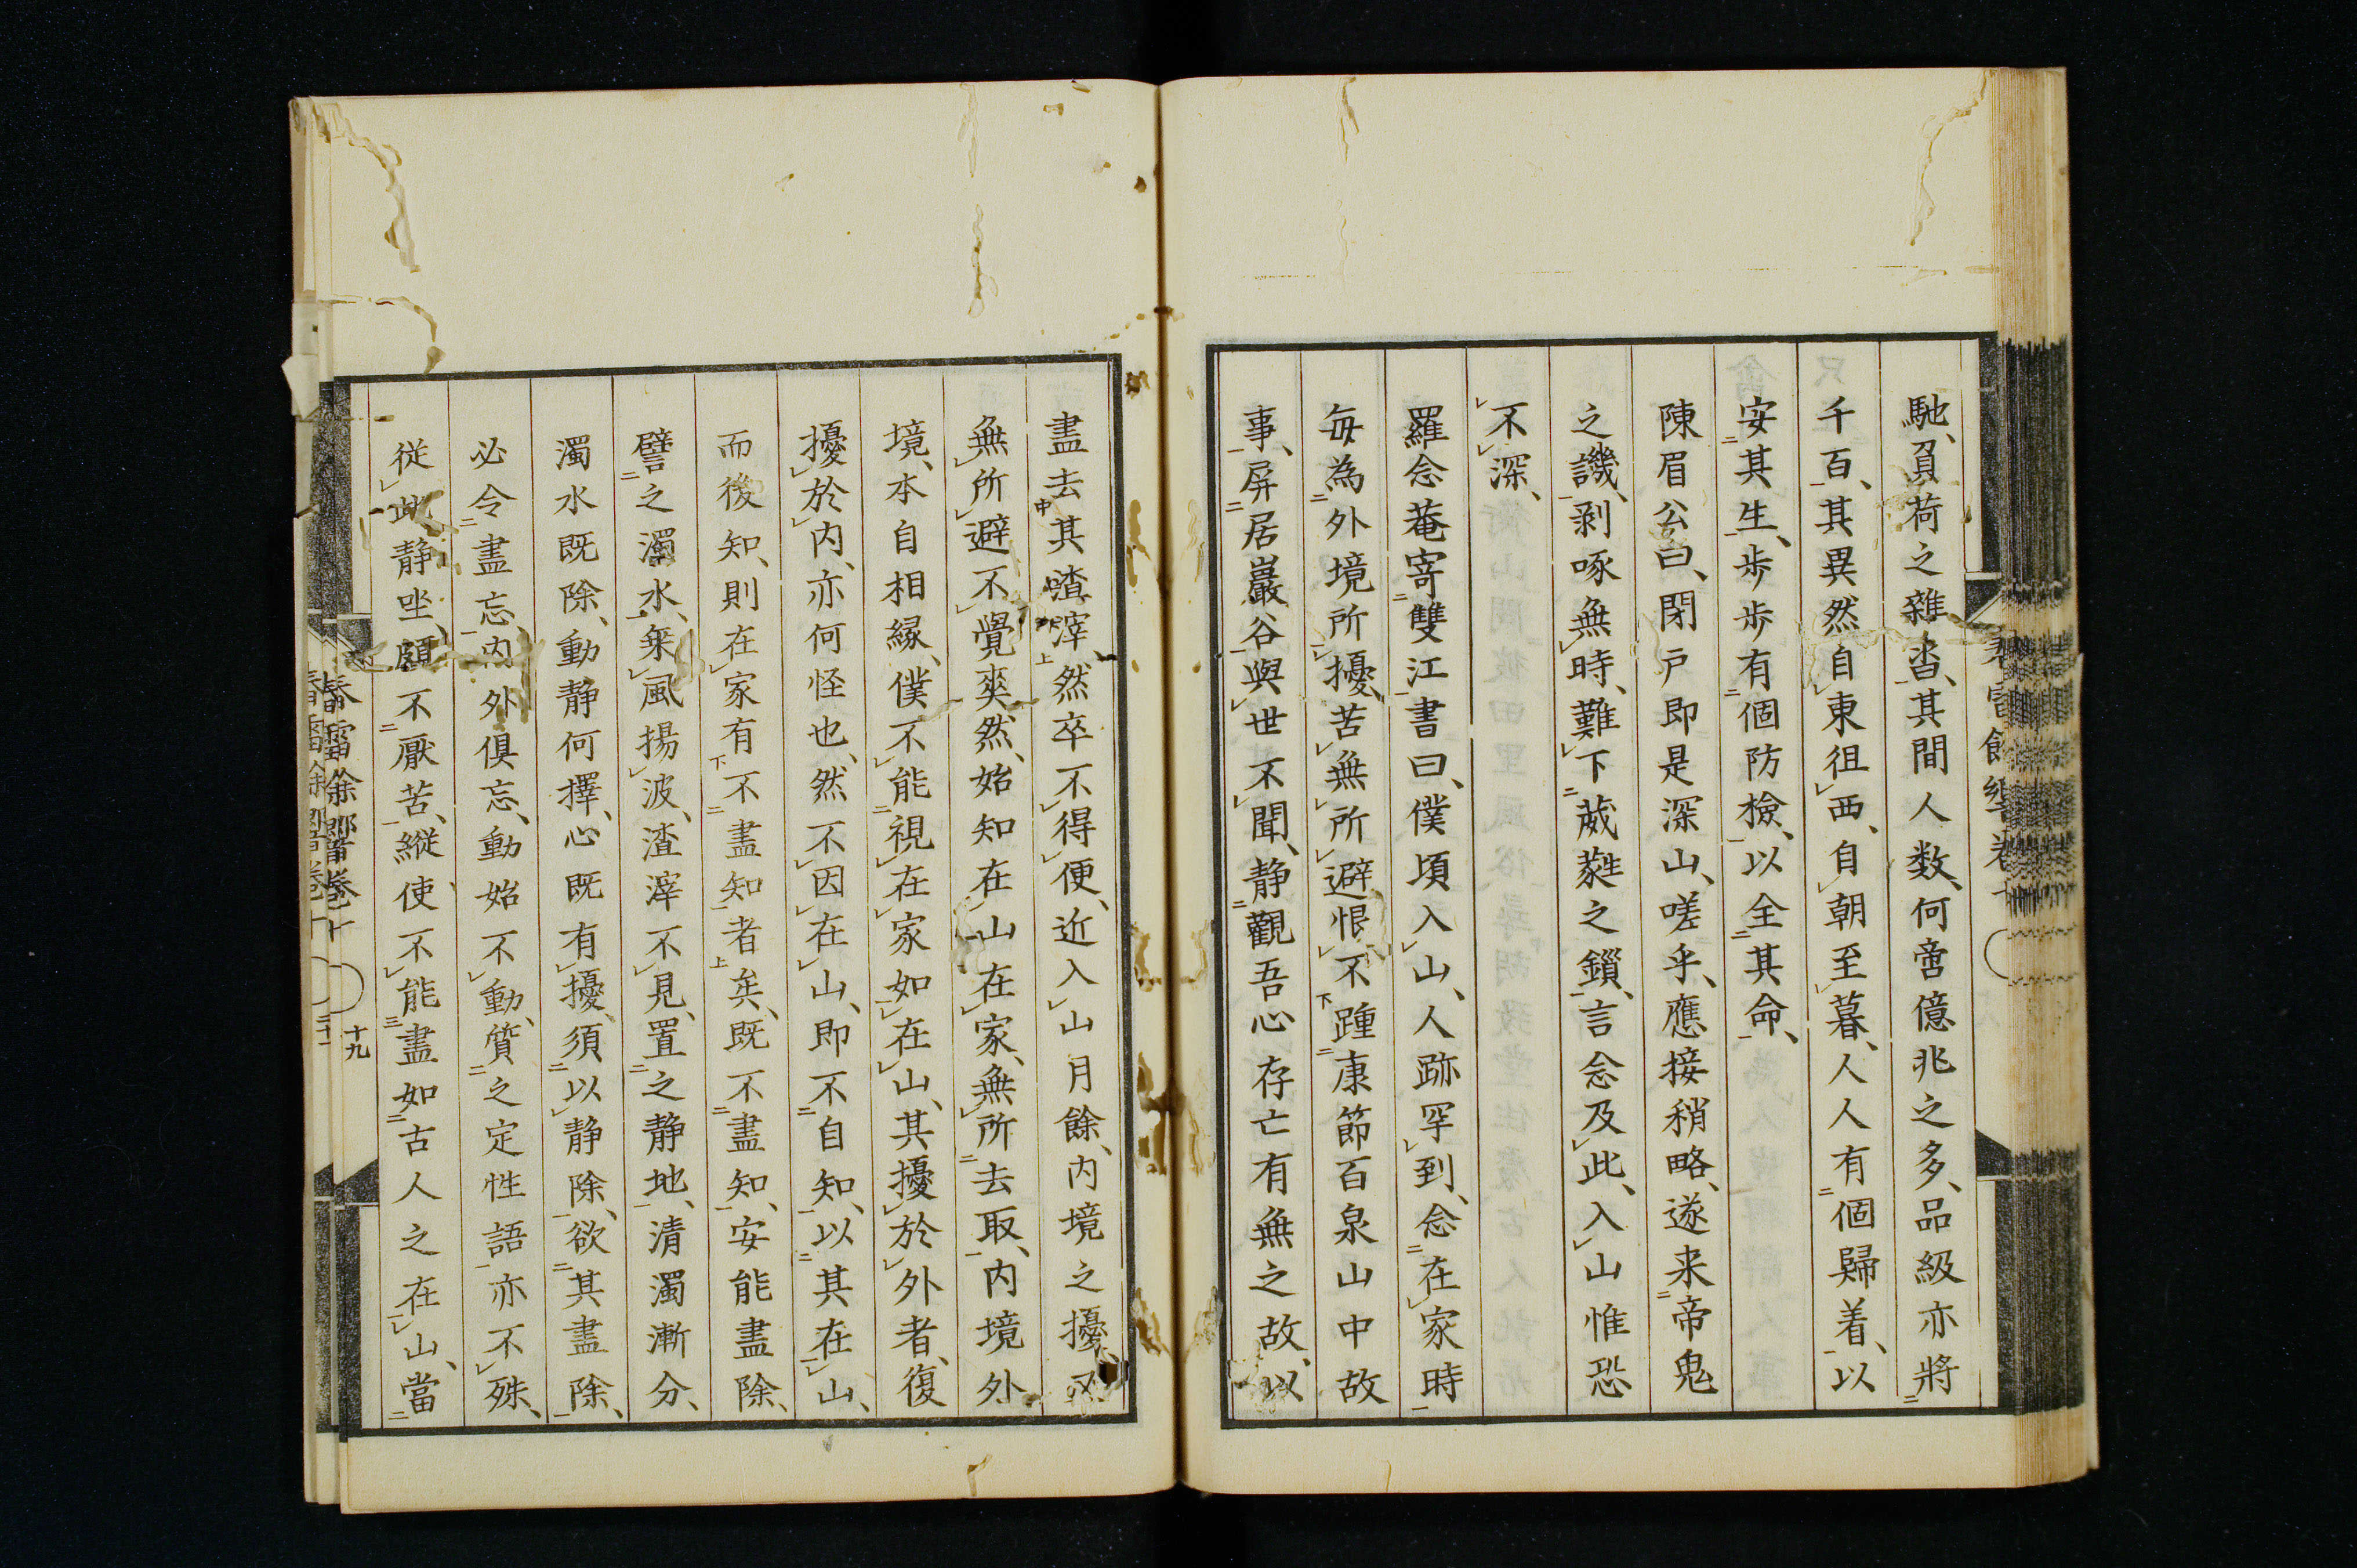 馳、負荷之雜沓、其間人数、何啻億兆之多、品級亦將
千百、其異然自東徂西、自朝至暮、人人有個歸着、以
安其生、歩歩有個防檢、以全其命、
陳眉公曰、閉戸即是深山、嗟乎、應接稍略、遂来帝鬼
之譏、剥啄無時、難下葳蕤之鎖、言念及此、入山惟恐
不深、
羅念菴寄雙江書曰、僕頃入山、人跡罕到、念在家時
毎為外境所擾、苦無所避、恨不踵康節百泉山中故
事、屏居巖谷、與世不聞、静觀吾心存亡有無之故、以
盡去其喳滓、然卒不得便、近入山月餘、内境之擾、又
無所避、不覺爽然、始知在山在家、無所去取、内境外
境、本自相縁、僕不能視在家如在山、其擾於外者、復
擾於内、亦何怪也、然不因在山、即不自知、以其在山、
而後知、則在家有不盡知者矣、既不盡知、安能盡除、
譬之濁水、乗風揚波、渣滓不見、置之静地、清濁漸分、
濁水既除、動静何擇、心既有擾、須以静除、欲其盡除、
必令盡忘、内外倶忘、動始不動、質之定性語亦不殊、
従此静坐、頗不厭苦、縦使不能盡如古人之在山、當
十九